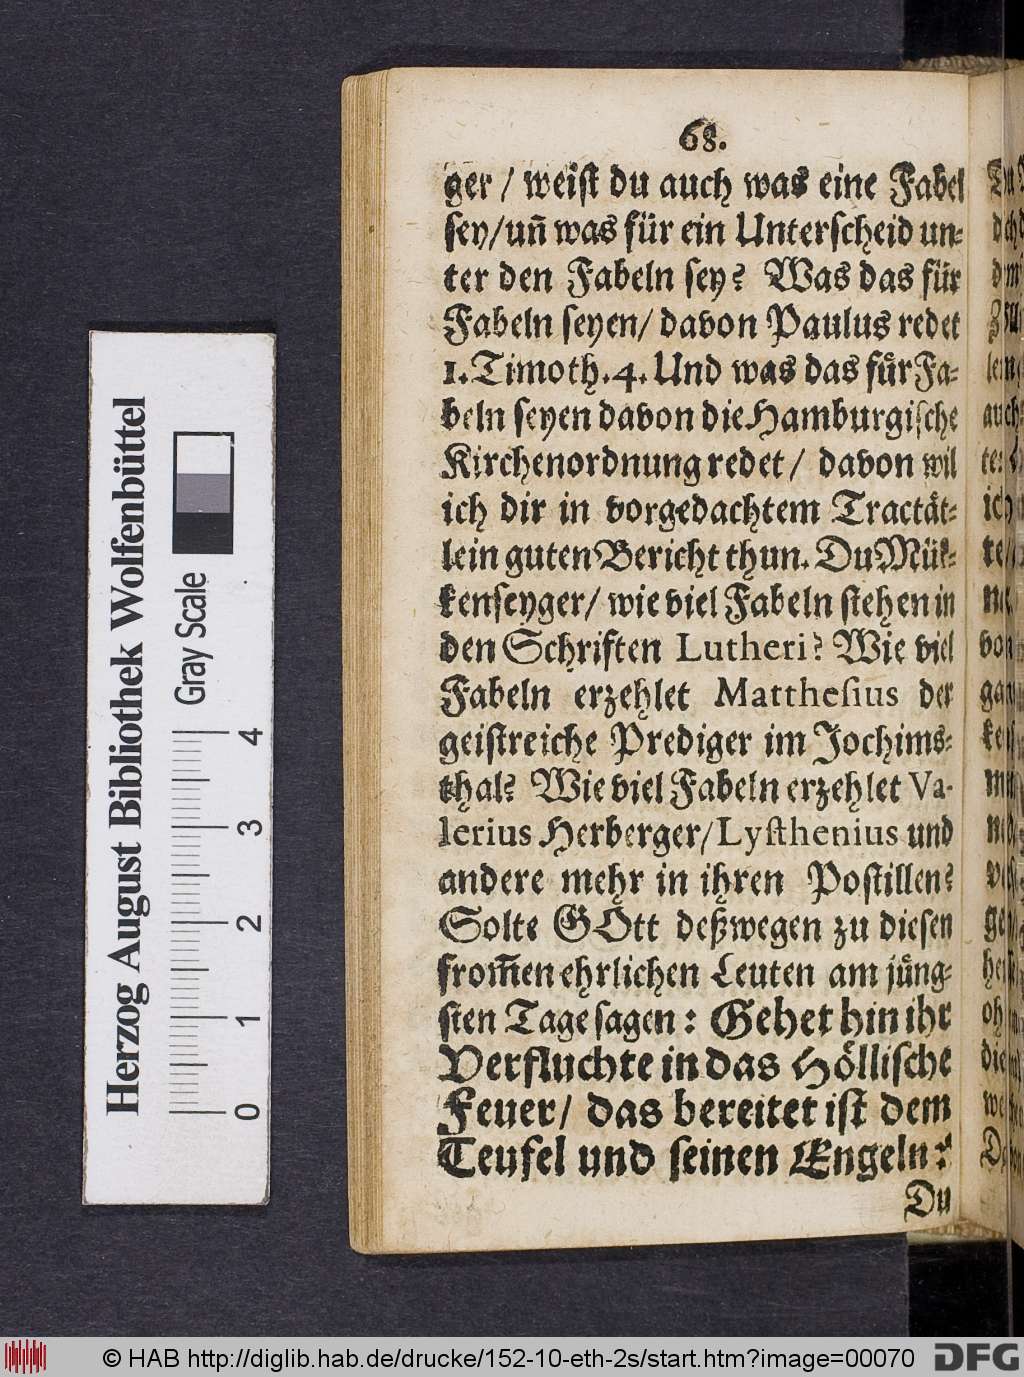 68.
ger / weist du auch was eine Fabel
sey/uñ was für ein Unterscheid un⸗
ter den Fabeln sey? Was das für
Fabeln seyen/ davon Paulus redet
1. Timoth. 4. Und was das für Fa⸗
beln seyen davon die Hamburgische
Kirchenordnung redet/ davon wil
ich dir in vorgedachtem Tractät⸗
lein guten Bericht thun. Du Mük⸗
kenseyger/ wie viel Fabeln stehen in
den Schriften Lutheri? Wie viel
Fabeln erzehlet Matthesius der
geistreiche Prediger im Jochims⸗
thal? Wie viel Fabeln erzehlet Va-
lerius Herberger/ Lysthenius und
andere mehr in ihren Postillen?
Solte GOtt deßwegen zu diesen
from̃en ehrlichen Leuten am jüng⸗
sten Tage sagen: Gehet hin ihr
Verfluchte in das Höllische
Feuer/ das bereitet ist dem
Teufel und seinen Engeln?
Du
Herzog August Bibliothek Wolfenbüttel
Gray Scale
0 1 2 3 4
© HAB http://diglib.hab.de/drucke/152-10-eth-2s/start.htm?image=00070
DFG